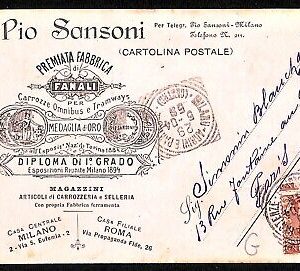 Pio Sansoni
Per Telegr. Pio Sansoni-Milano
Telefono N.
(CARTOLINA POSTALE)
PREMIATA FABBRICA
di
FANALI
PER
Carrozze Omnibus e Tramways
MEDAGLIA D'ORO
DIPLOMA DI 1º GRADO
Esposizioni Riunite Milano 1894
MAGAZZINI
ARTICOLI DI CARROZZERIA e SELLERIA
Con propria Fabbrica ferramenta
CASA CENTRALE
MILANO
2 - Via S. Eufemia - 2
CASA FILIALE
ROMA
Via Propaganda Fide, 26
Sig
13 Rue Fontaine au
Paris
G